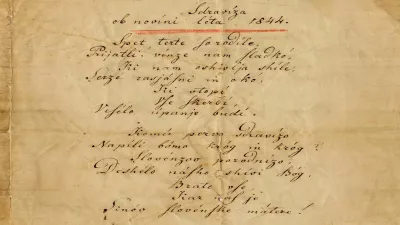 Sdravíza
ob novini léta 1844.
Spet terte so rodile
Prijatli vinze nam sladkó,
Ki nam oshivlja shile
Serze rasjásni in okó.
Ki otopí
Vse skerbí,
Veselo úpanje budí.
Komú pervo sdravízo
Napili bómo króg in króg?
Slovenzov porodnízo
Deshêlo násho shívi Bóg.
Brate vse
Kar nas je
Sinov slovénske mátere!